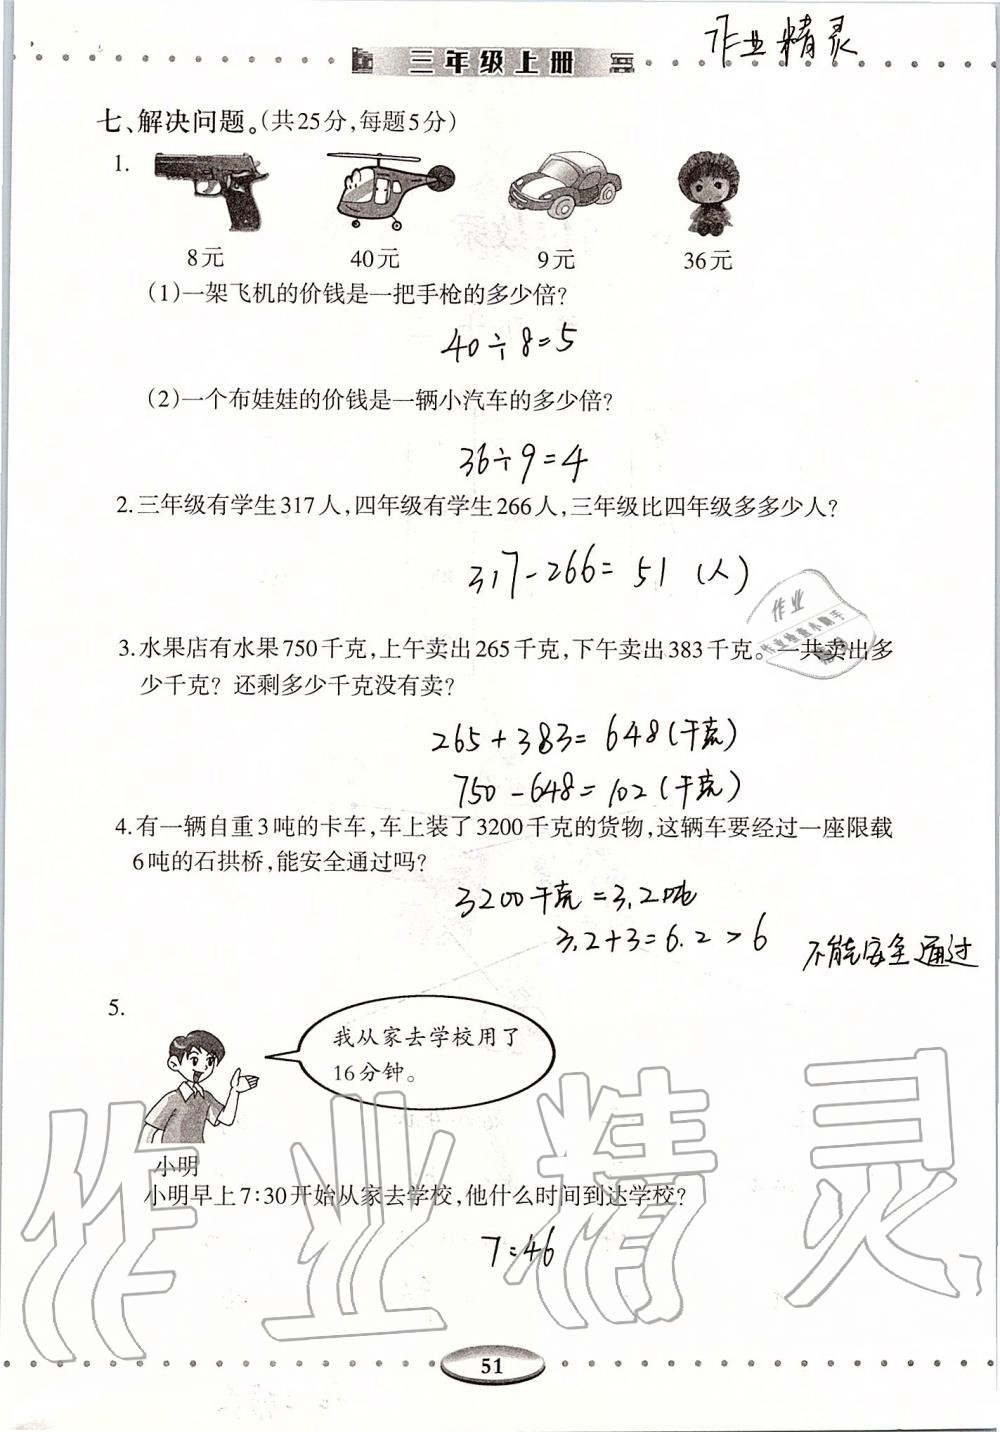 作业精灵
三年级上册
七、解决问题。(共25分,每题5分)
1.
8元 40元 9元 36元
(1)一架飞机的价钱是一把手枪的多少倍?
40÷8=5
(2)一个布娃娃的价钱是一辆小汽车的多少倍?
36÷9=4
2.三年级有学生317人,四年级有学生266人,三年级比四年级多多少人?
317-266=51(人)
作业
3.水果店有水果750千克,上午卖出265千克,下午卖出383千克。一共卖出多
少千克?还剩多少千克没有卖?
265+383=648(千克)
750-648=102(千克)
4.有一辆自重3吨的卡车,车上装了3200千克的货物,这辆车要经过一座限载
6吨的石拱桥,能安全通过吗?
3200千克=3.2吨
3.2+3=6.2>6 不能安全通过
5.
我从家去学校用了
16分钟。
小明
小明早上7:30开始从家去学校,他什么时间到达学校?
7:46
作业精灵
51